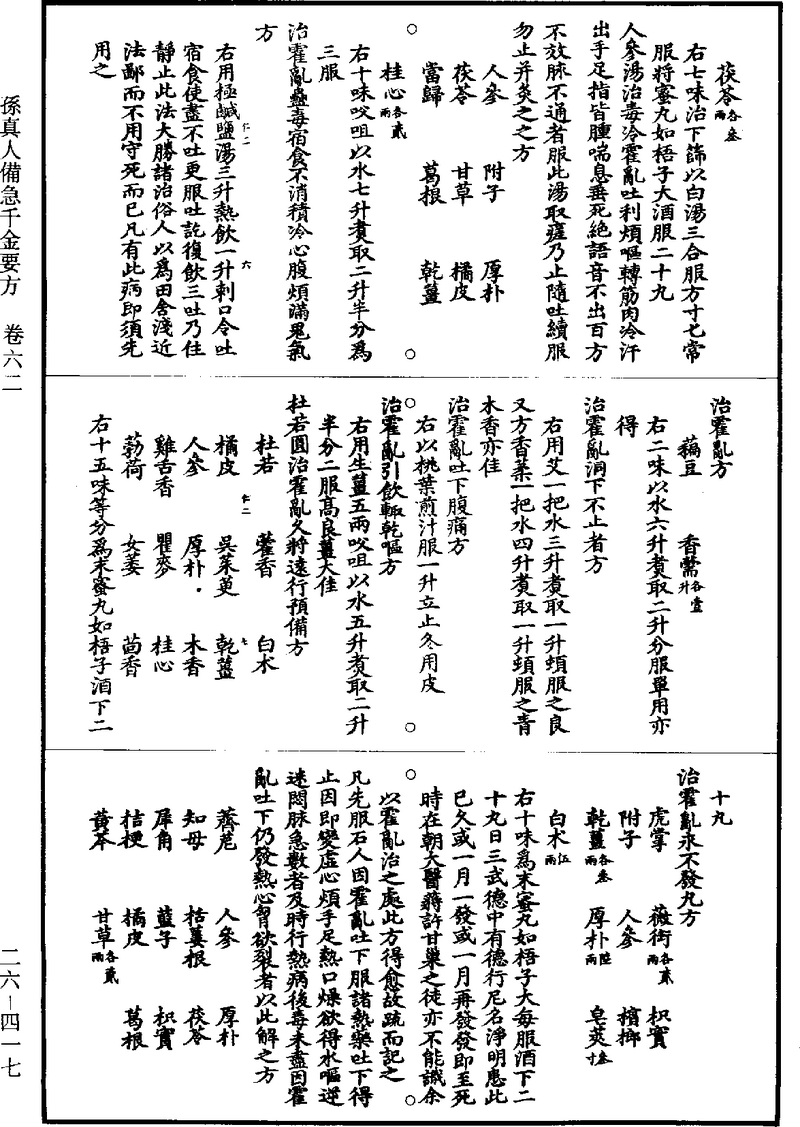 茯苓各叁兩
右七味治下篩以白湯三合服方寸匕常
服將蜜丸如梧子大酒服二十丸
人參湯治毒冷霍亂吐利煩嘔轉筋肉冷汗
出手足指皆腫喘息垂死絶語音不出百方
不效脉不通者服此湯取瘥乃止隨吐續服
勿止并灸之之方
人參 附子 厚朴
茯苓 甘草 橘皮
當歸 葛根 乾薑
桂心各貳兩
右十味㕮咀以水七升煑取二升半分爲
三服
治霍亂蠱毒宿食不消積冷心腹煩滿鬼氣
方
右用極鹹鹽湯三升熱飲一升刺口令吐
宿食使盡不吐更服吐訖復飲三吐乃住
静止此法大勝諸治俗人以爲田舍淺近
法鄙而不用守死而已凡有此病即須先
用之
治霍亂方
藊豆 香薷各壹升
右二味以水六升煑取二升分服單用亦
得
治霍亂洞下不止者方
右用艾一把水三升煑取一升頓服之良
又方香葇一把水四升煑取一升頓服之青
木香亦佳
治霍亂吐下腹痛方
右以桃葉煎汁服一升立止冬用皮
治霍亂引飲輙乾嘔方
右用生薑五兩㕮咀以水五升煑取二升
半分二服高良薑大佳
杜若圓治霍亂久將遠行預備方
杜若 藿香 白术
橘皮 吳茱萸 乾薑
人參 厚朴 木香
雞舌香 瞿麥 桂心
薄荷 女萎 茴香
右十五味等分爲末蜜丸如梧子酒下二
十丸
治霍亂永不發丸方
虎掌 薇衘各貳兩 枳實
附子 人參 檳榔
乾薑各叁兩 厚朴陸兩 皂莢叁寸
白术伍兩
右十味爲末蜜丸如梧子大每服酒下二
十丸日三武德中有德行尼名淨明患此
已久或一月一發或一月再發發即至死
時在朝大醫蔣許甘巢之徒亦不能識余
以霍亂治之處此方得愈故疏而記之
凡先服石人因霍亂吐下服諸熱藥吐下得
止因即變虛心煩手足熱口燥欲得水嘔逆
迷悶脉急數者及時行熱病後毒未盡因霍
亂吐下仍發熱心胷欲裂者以此解之方
薺苨 人參 厚朴
知母 栝蔞根 茯苓
犀角 藍子 枳實
桔梗 橘皮 葛根
黄芩 甘草各貳兩
孫真人備急千金要方 卷六二
二六—四一七